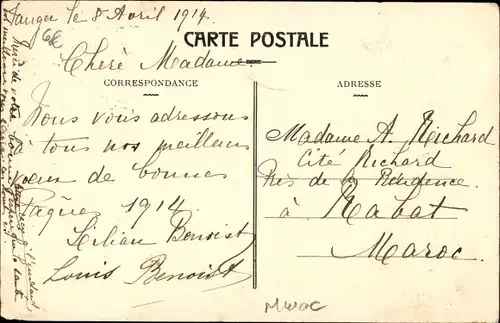 Tanger le 8 Avril 1914.
CARTE POSTALE
Chère Madame
CORRESPONDANCE
Nous vous adressons
à tous nos meilleurs
vœux de bonnes
Pâques 1914.
Kilian Benoist
Louis Benoist
ADRESSE
Madame A. Richard
Cité Richard
Près de la Résidence.
à Rabat
Maroc.
Maroc